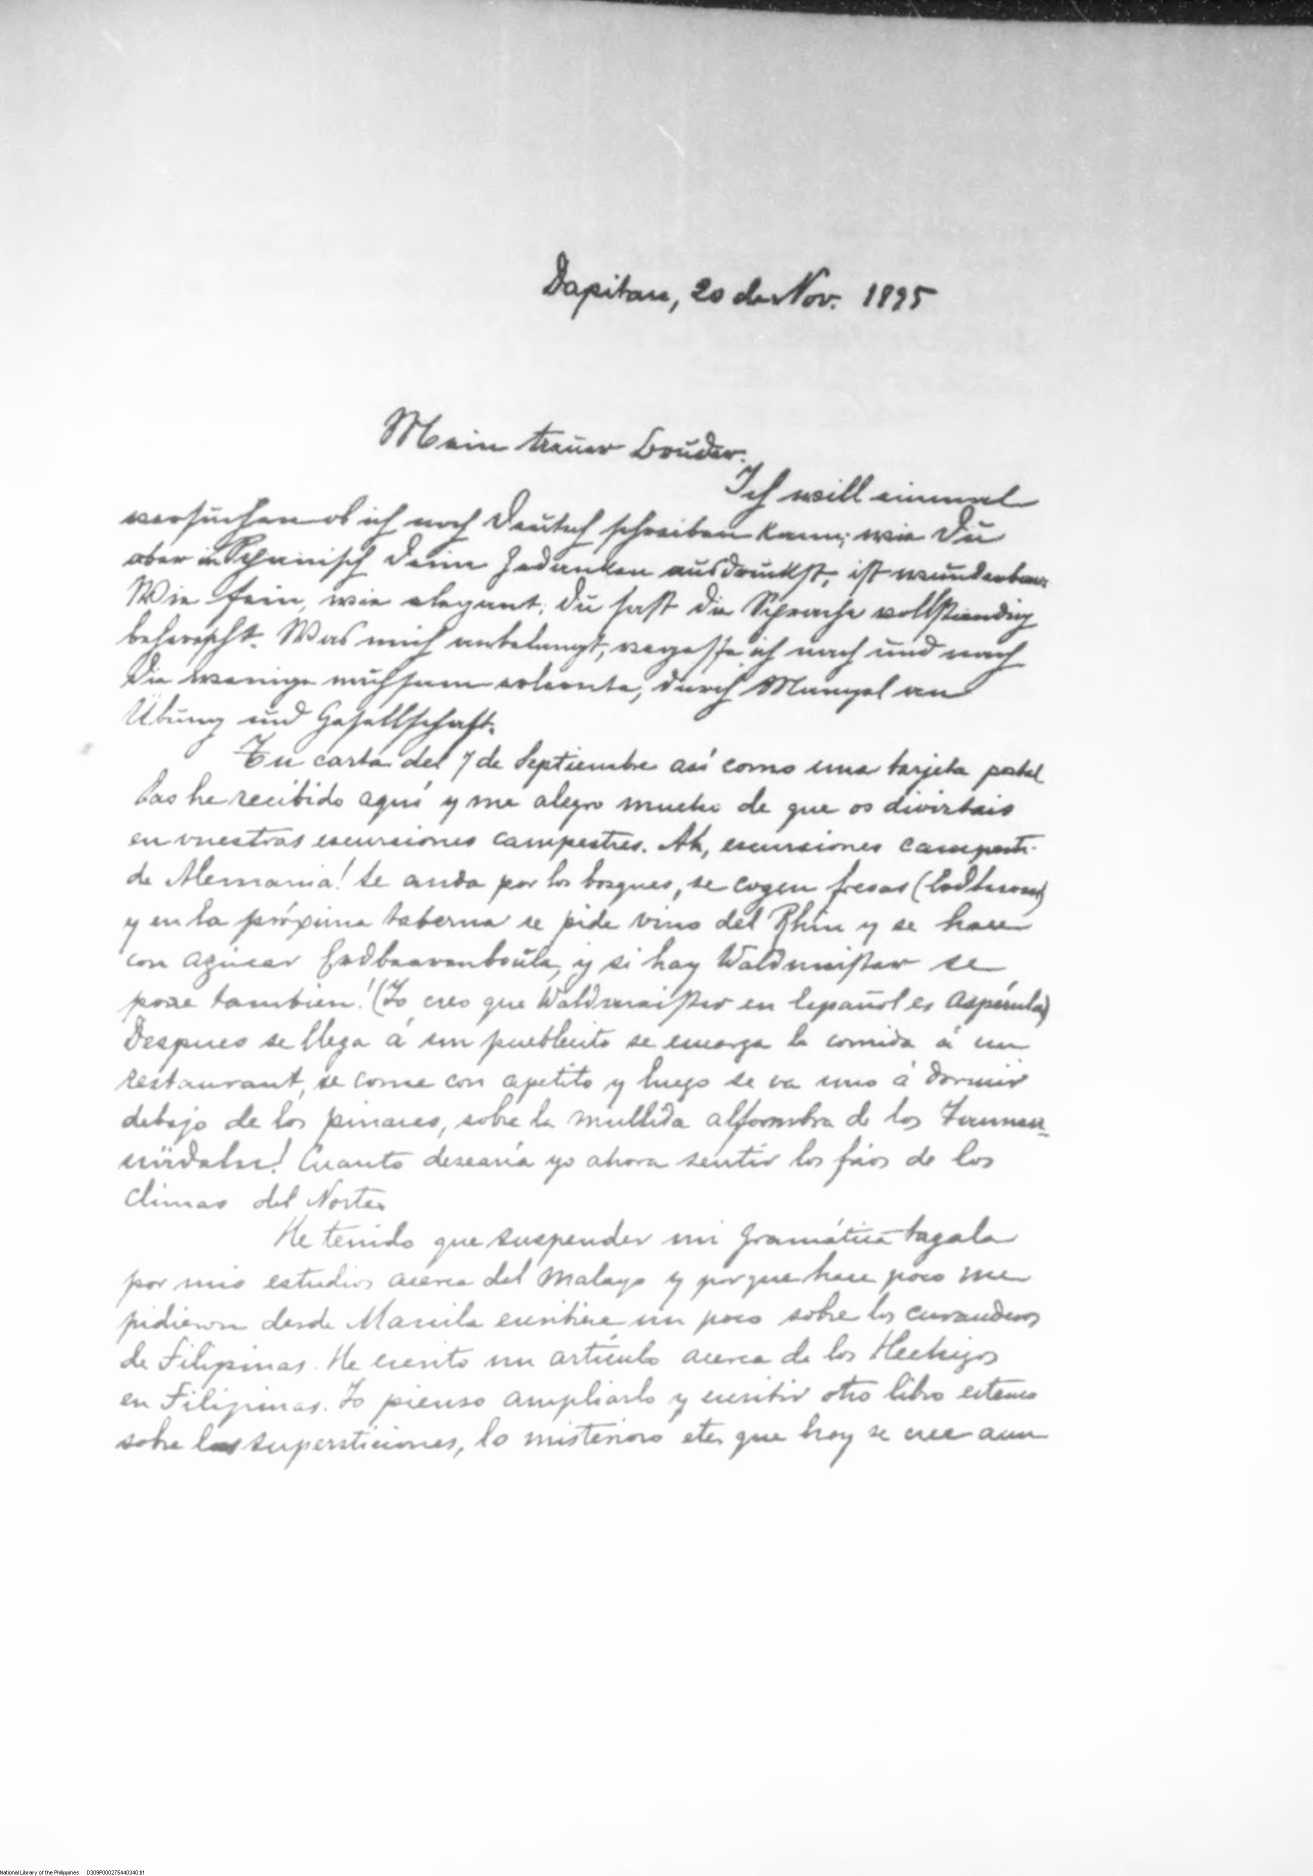 Dapitan, 20 de Nov. 1895
Mein treuer Bruder.
Ich will einmal
versuchen ob ich noch Deutsch schreiben kann; wie Du
aber in Spanisch Deine Gedanken ausdrückst, ist wunderbar
Wie fein, wie elegant; Du hast die Sprache vollständig
beherrscht. Was mich anbelangt, vergesse ich nach und nach
die wenige mühsam erlernte, durch Mangel an
Übung und Gesellschaft.
Tu carta del 7 de Septiembre así como una tarjeta postal
las he recibido aquí y me alegro mucho de que os divirtais
en vuestras escursiones campestres. Ah, escursiones campestr.
de Alemania! Se anda por los bosques, se cogen fresas (Erdbeeren)
y en la próxima taberna se pide vino del Rhin y se hace
con azúcar Erdbeerenbowle, y si hay Waldmeister se
pone tambien! (Yo creo que Waldmeister en Español es Aspérula)
Despues se llega á un pueblecito se encarga la comida á un
restaurant, se come con apetito y luego se va uno á dormir
debajo de los pinares, sobre la mullida alfombra de los Tannen-
nädeln! Cuanto desearía yo ahora sentir los fríos de los
climas del Norte.
He tenido que suspender mi gramática tagala
por mis estudios acerca del Malayo y porque hace poco me
pidieron desde Manila escribiese un poco sobre los curanderos
de Filipinas. He escrito un artículo acerca de los Hechizos
en Filipinas. Yo pienso ampliarlo y escribir otro libro estenso
sobre las supersticiones, lo misterioso etc. que hoy se cree aun
National Library of the Philippines